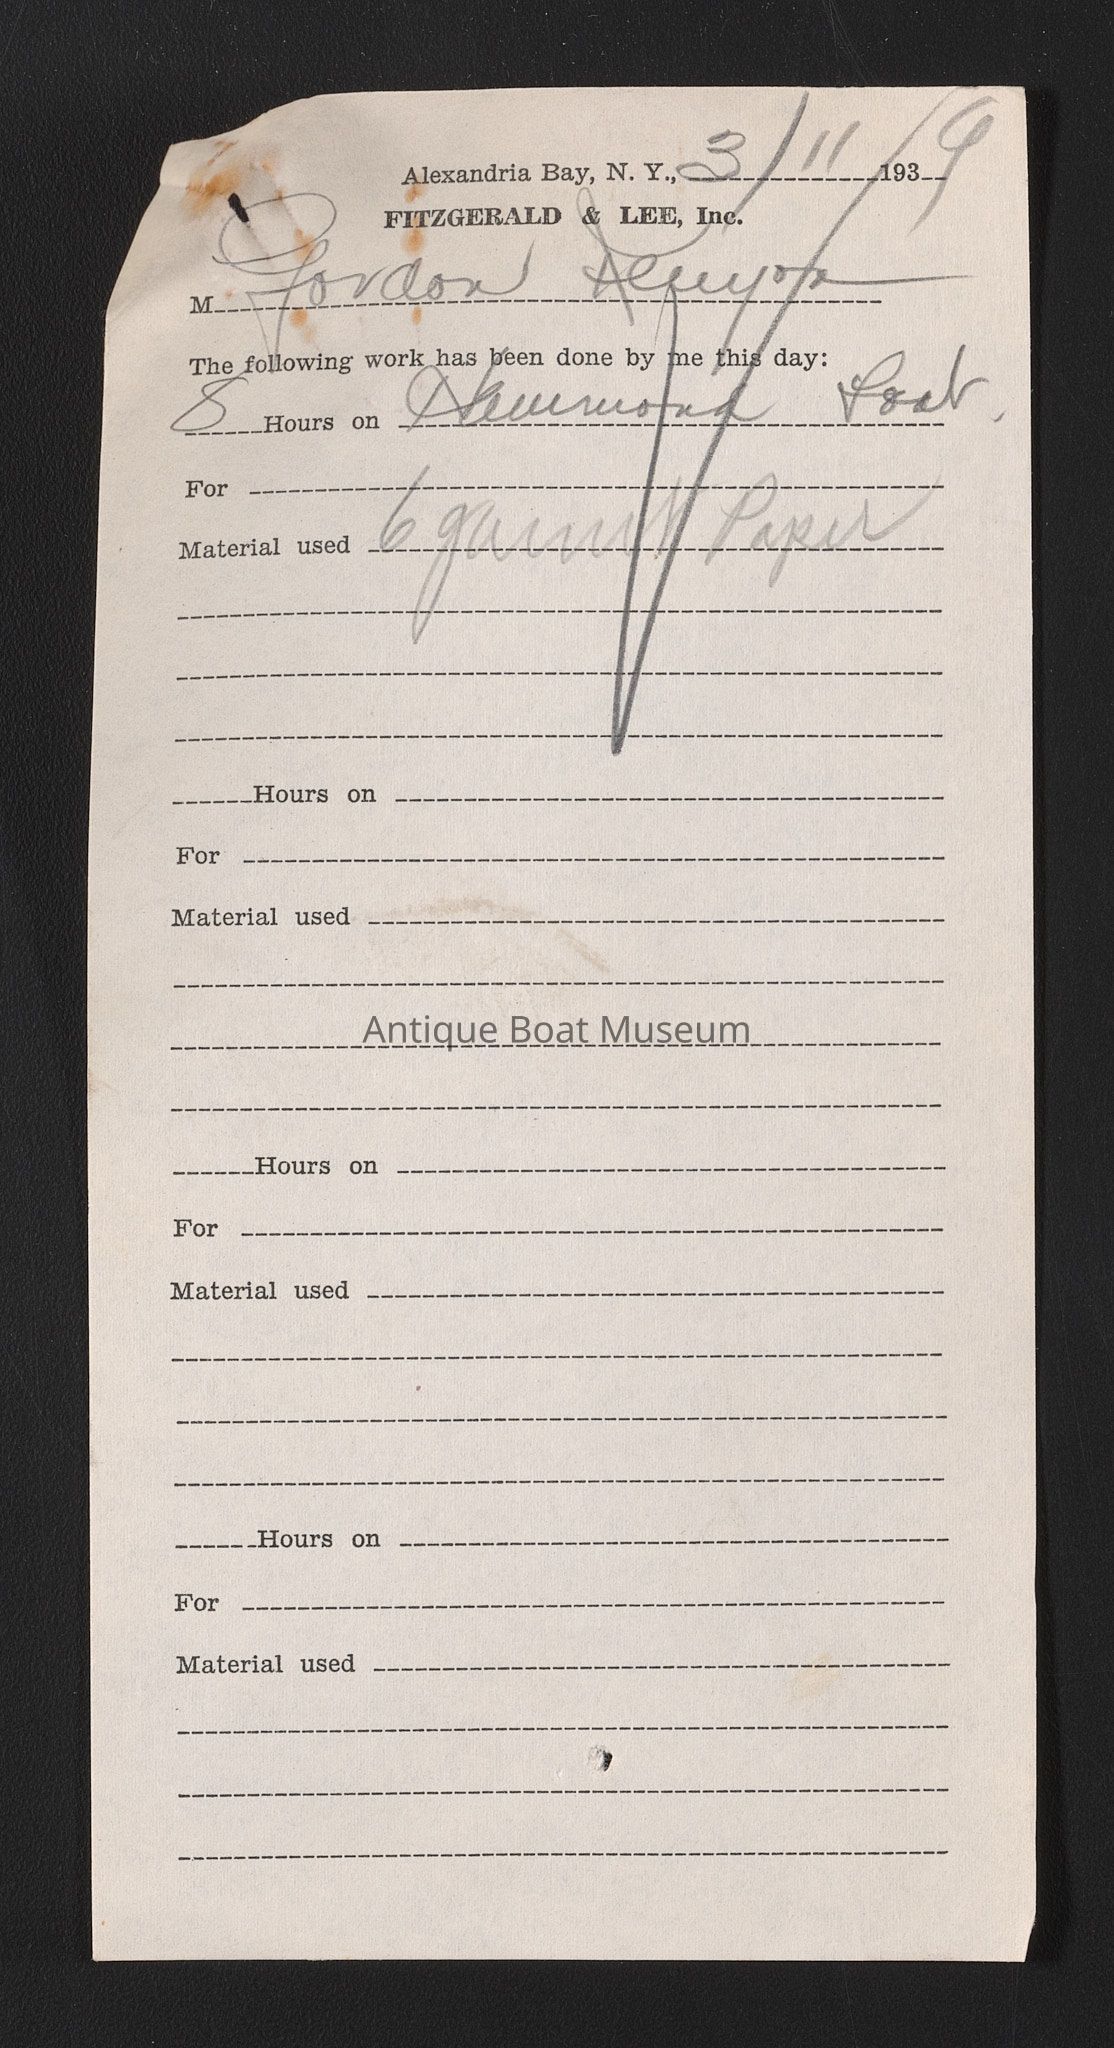 Alexandria Bay, N. Y., 3/11/ 1939
FITZGERALD & LEE, Inc.
M Gordon Kenyon
The following work has been done by me this day:
8 Hours on Hammond Boat.
For
Material used 6 garnit Paper
Hours on
For
Material used
Antique Boat Museum
Hours on
For
Material used
Hours on
For
Material used